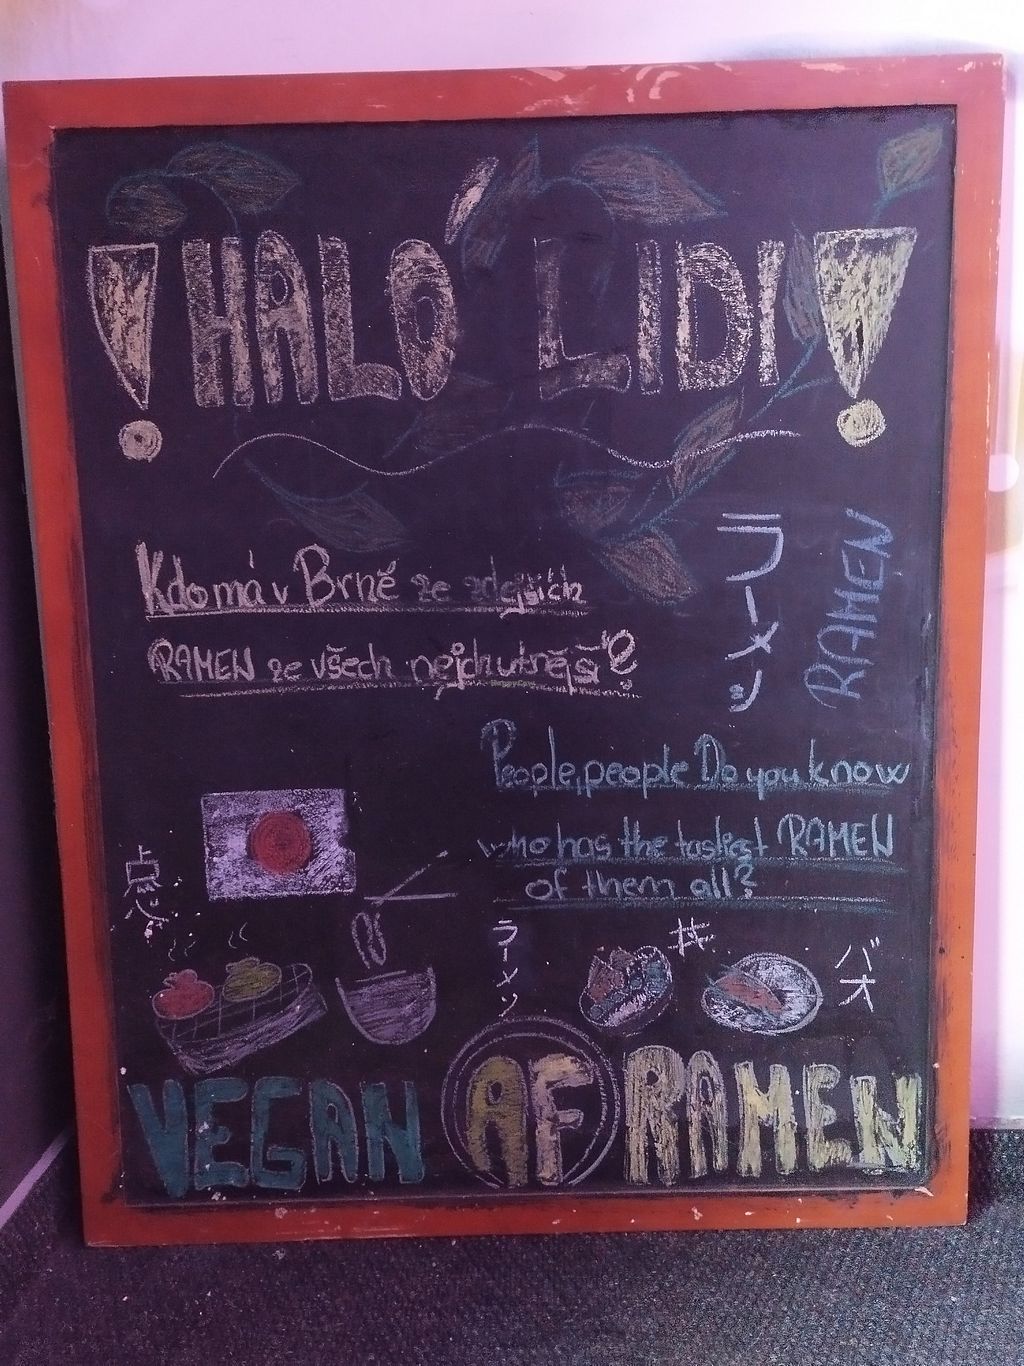 ! HALÓ LIDI !
Kdo má v Brně ze zdejších
RAMEN ze všech nejchutnější?
ラーメン
RAMEN
People, people Do you know
who has the tastiest RAMEN
of them all?
点心
ラーメン
丼
バオ
VEGAN AF RAMEN